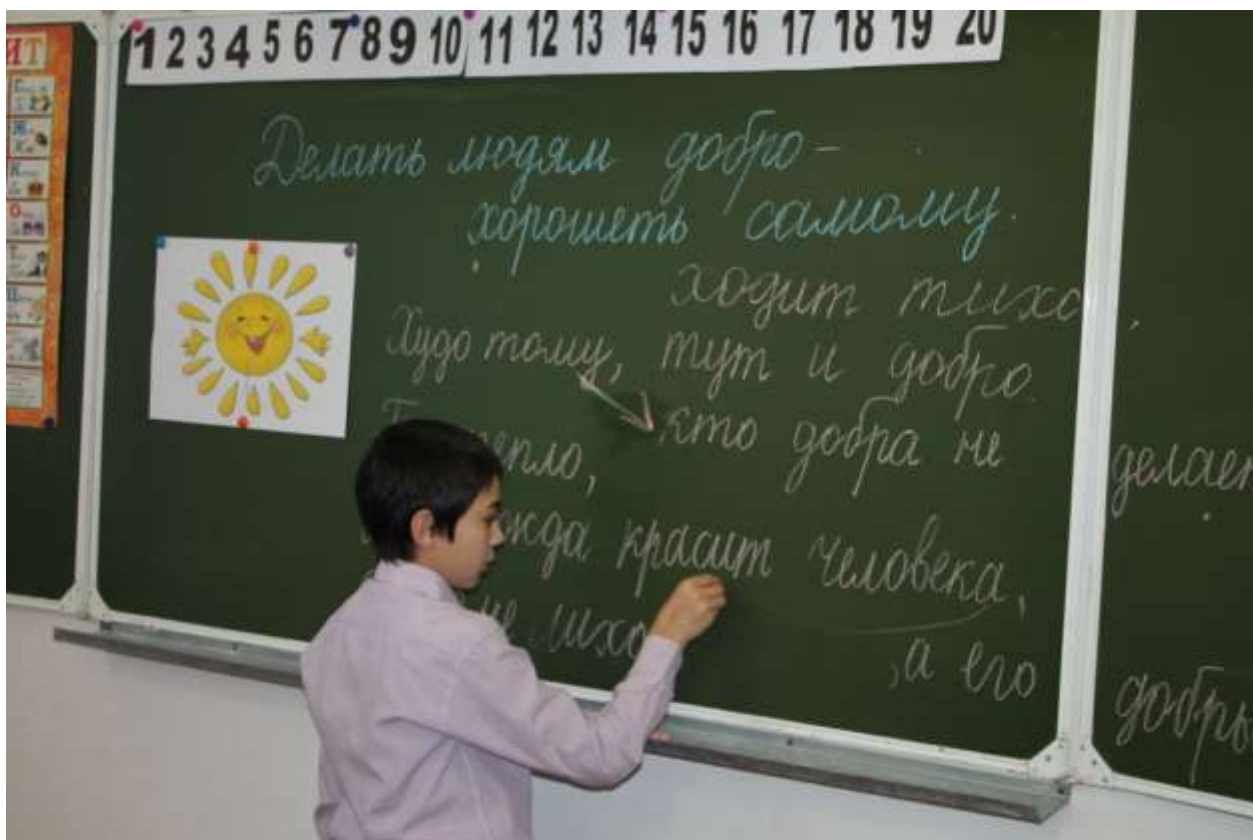 ИТ
1 2 3 4 5 6 7 8 9 10 11 12 13 14 15 16 17 18 19 20
Делать людям добро –
хорошеть самому.
ходит тихо,
Худо тому, тут и добро.
кто добра не делает
епло,
жда красит человека,
не лихо
, а его добры